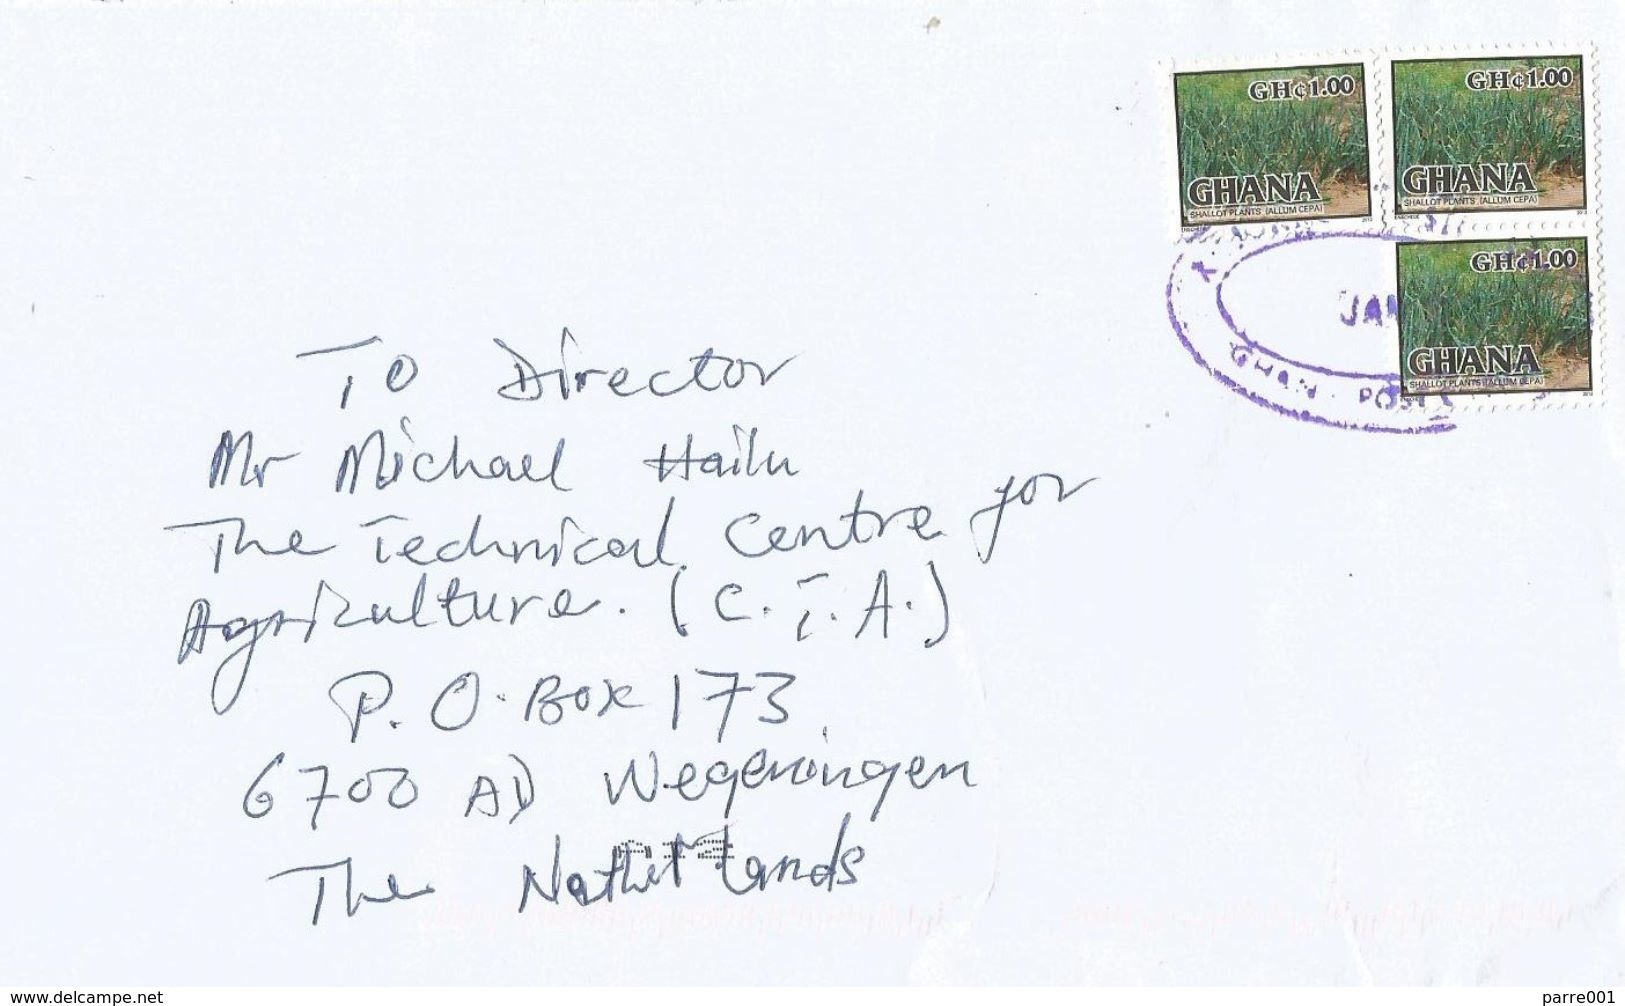 GH¢1.00
GHANA
SHALLOT PLANTS (ALLUM CEPA)
ENSCHEDE 2012
GH¢1.00
GHANA
SHALLOT PLANTS (ALLUM CEPA)
ENSCHEDE 2012
GH¢1.00
GHANA
SHALLOT PLANTS (ALLUM CEPA)
JAN
GHANA POST
To Director
Mr Michael Hailu
The Technical Centre for
Agriculture. (C.T.A.)
P.O. Box 173
6700 AD Wegeningen
The Netherlands
www.delcampe.net
parre001